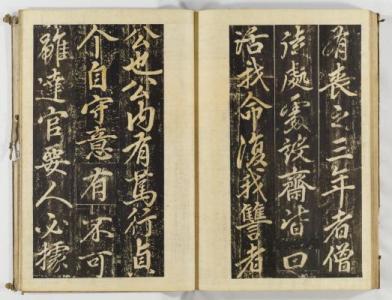 有喪之三年者僧
徒處處設齋皆曰
活我命復我讎者
公也公內有篤行貞
介自守意有不可
雖達官要人必據